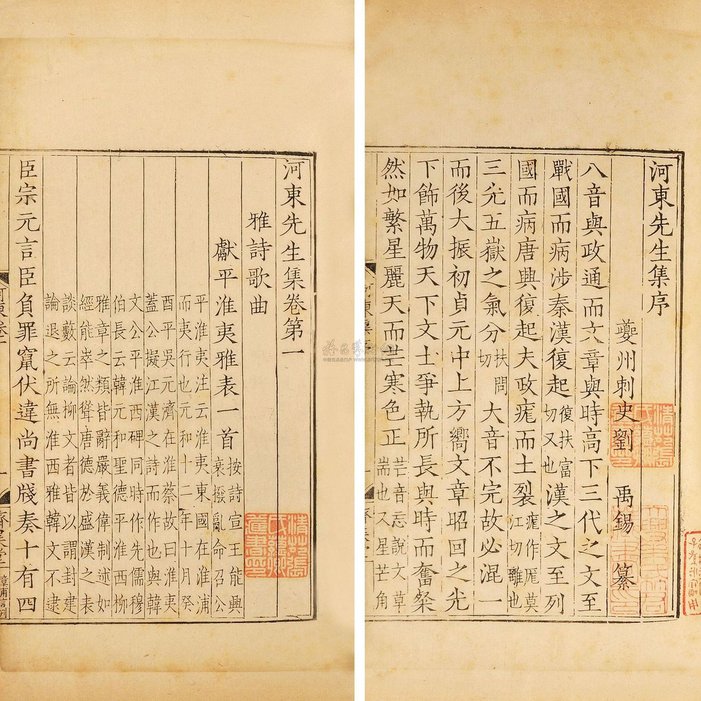 河東先生集序
夔州刺史劉 禹錫 纂
八音與政通而文章與時高下三代之文至
戰國而病涉秦漢復起復扶富切又也漢之文至列
國而病唐興復起夫政痝而土裂痝作厖莫江切雜也
三光五嶽之氣分扶問切大音不完故必混一
而後大振初貞元中上方嚮文章昭回之光
下飾萬物天下文士爭執所長與時而奮粲
然如繁星麗天而芒寒色正芒音忘說文草耑也又星芒角
河東先生集卷第一
雅詩歌曲
獻平淮夷雅表一首按詩宣王能興衰撥亂命召公
平淮夷注云淮夷東國在淮浦
而夷行也元和十二年十月癸
酉平吳元濟在淮蔡故曰淮夷
蓋公擬江漢之詩而作也與韓
文公平淮西碑同時作先儒穆
伯長云韓元和聖德平淮西柳
雅章之類皆辭嚴義偉制述如
經能崒然聳唐德於盛漢之表
談藪云論柳文者皆以謂封建
論退之所無淮西雅韓文不逮
臣宗元言臣負罪竄伏違尚書牋奏十有四